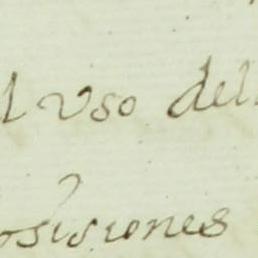 l uso del
osisiones